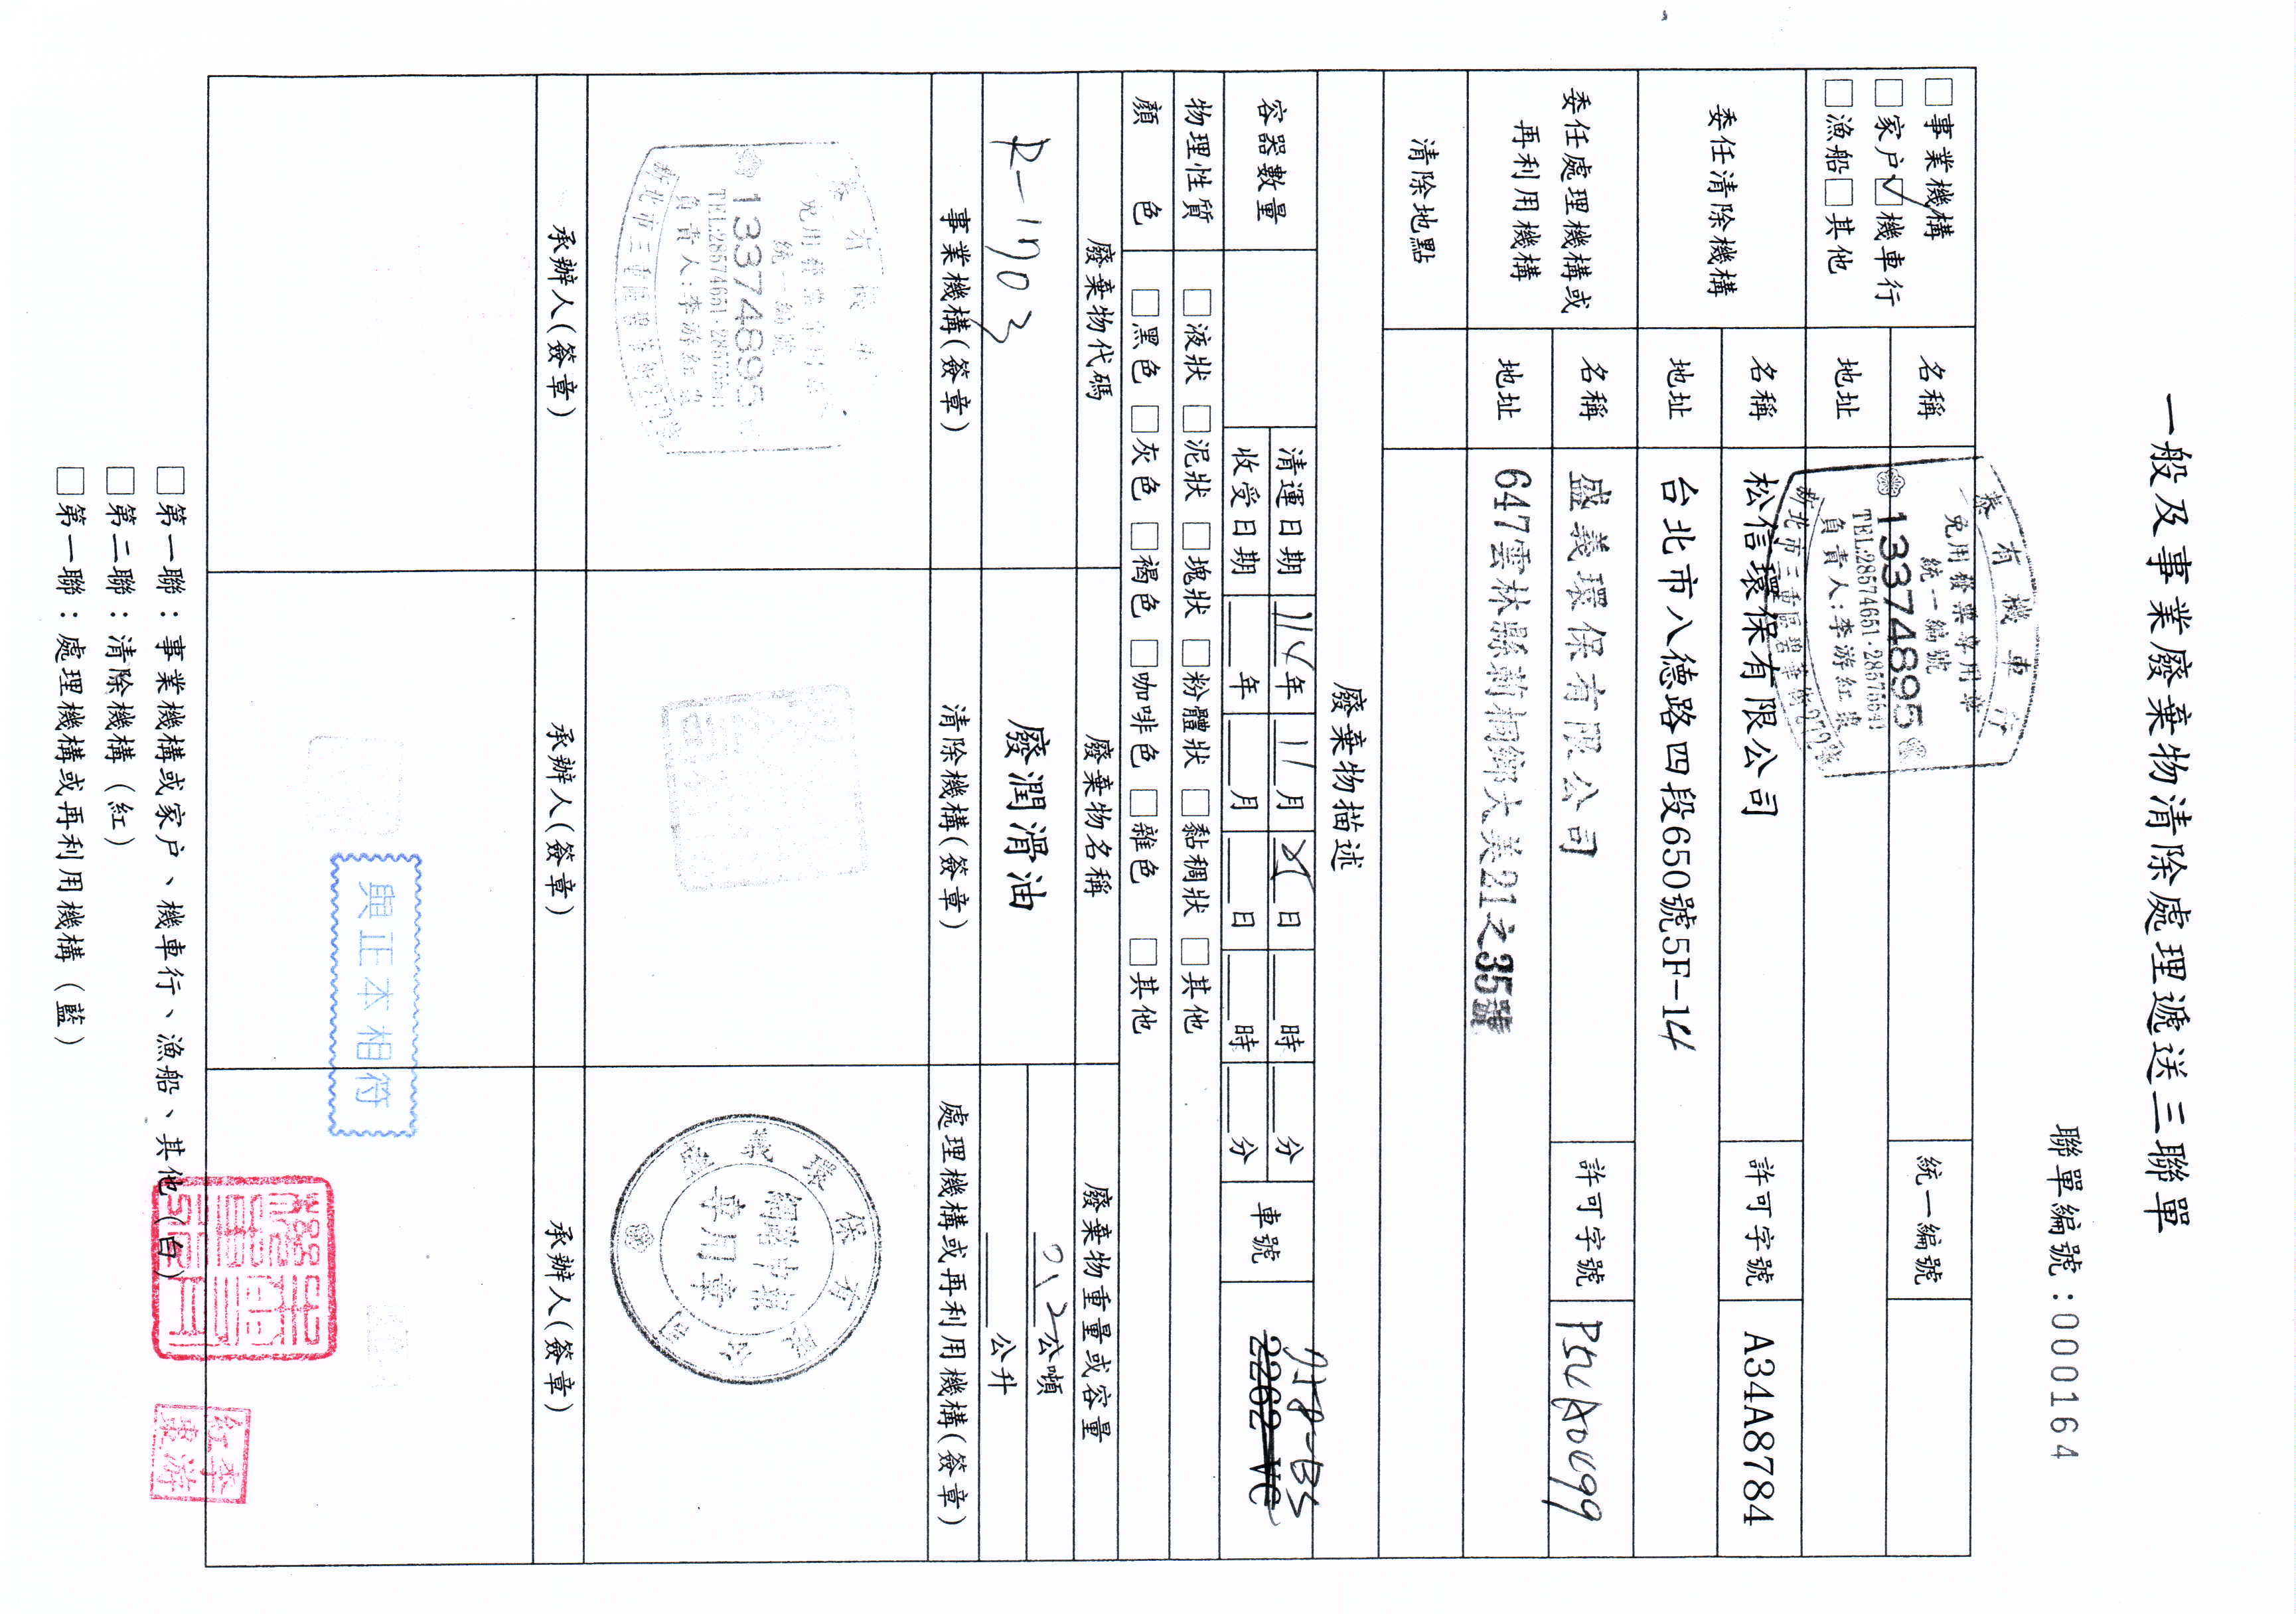 一般及事業廢棄物清除處理遞送三聯單
聯單編號：0000164
□事業機構
□家戶☑機車行
□漁船□其他
名稱
泰有機車行
免用發票專用章
統一編號
13374895
TEL:28574651·28575641
負責人:李游紅
新北市三重區
統一編號
地址
委任清除機構
名稱
松信環保有限公司
許可字號
A34A8784
地址
台北市八德路四段650號5F-14
委任處理機構或
再利用機構
名稱
盛義環保有限公司
許可字號
地址
647雲林縣莿桐鄉大美21之35號
清除地點
廢棄物描述
容器數量
清運日期 114年11月 日 時 分
收受日期 年 月 日 時 分
車號
2262-VC
物理性質
□液狀 □泥狀 □塊狀 □粉體狀 □黏稠狀 □其他
顏色
□黑色 □灰色 □褐色 □咖啡色 □雜色 □其他
廢棄物代碼
廢棄物名稱
廢棄物重量或容量
R-1703
廢潤滑油
0.2公噸
公升
事業機構(簽章)
清除機構(簽章)
處理機構或再利用機構(簽章)
機車
免用
統一編號
13374895
TEL:28574651·28575641
負責人:李游紅
新北市三重區
盛義環保有限公司
專用章
承辦人(簽章)
承辦人(簽章)
承辦人(簽章)
與正本相符
□第一聯：事業機構或家戶、機車行、漁船、其他(白)
□第二聯：清除機構(紅)
□第一聯：處理機構或再利用機構(藍)